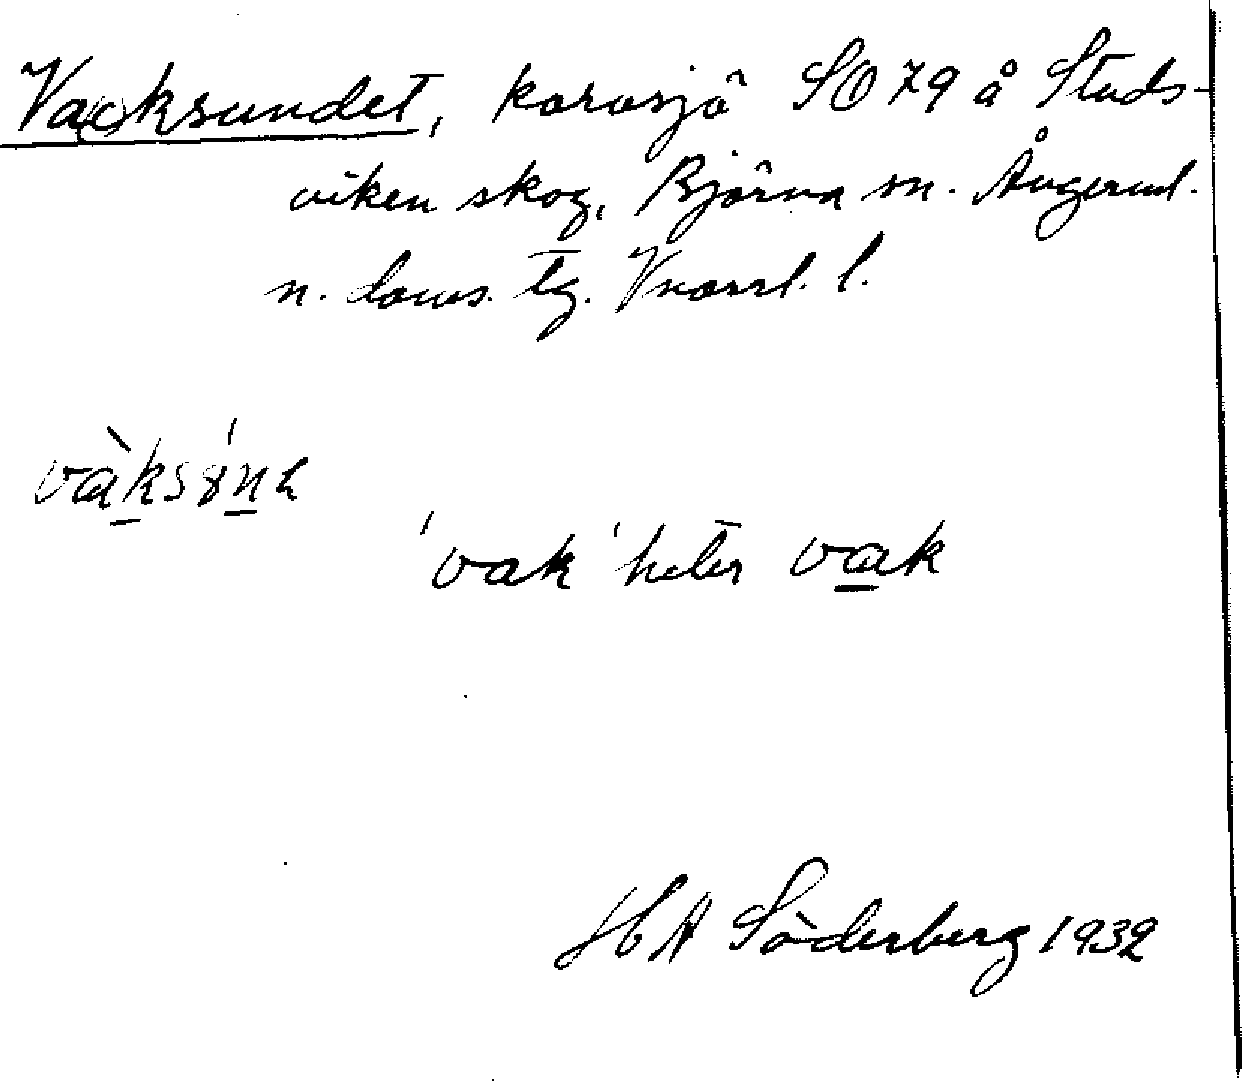 Va(c)ksundet, korvsjö SO 79 å Studs-
viken skog, Björna sn. Ångerml.
n. doms. tg. Vnorrl. l.
vàksýn
'vak' heter vak
HA Söderberg 1932